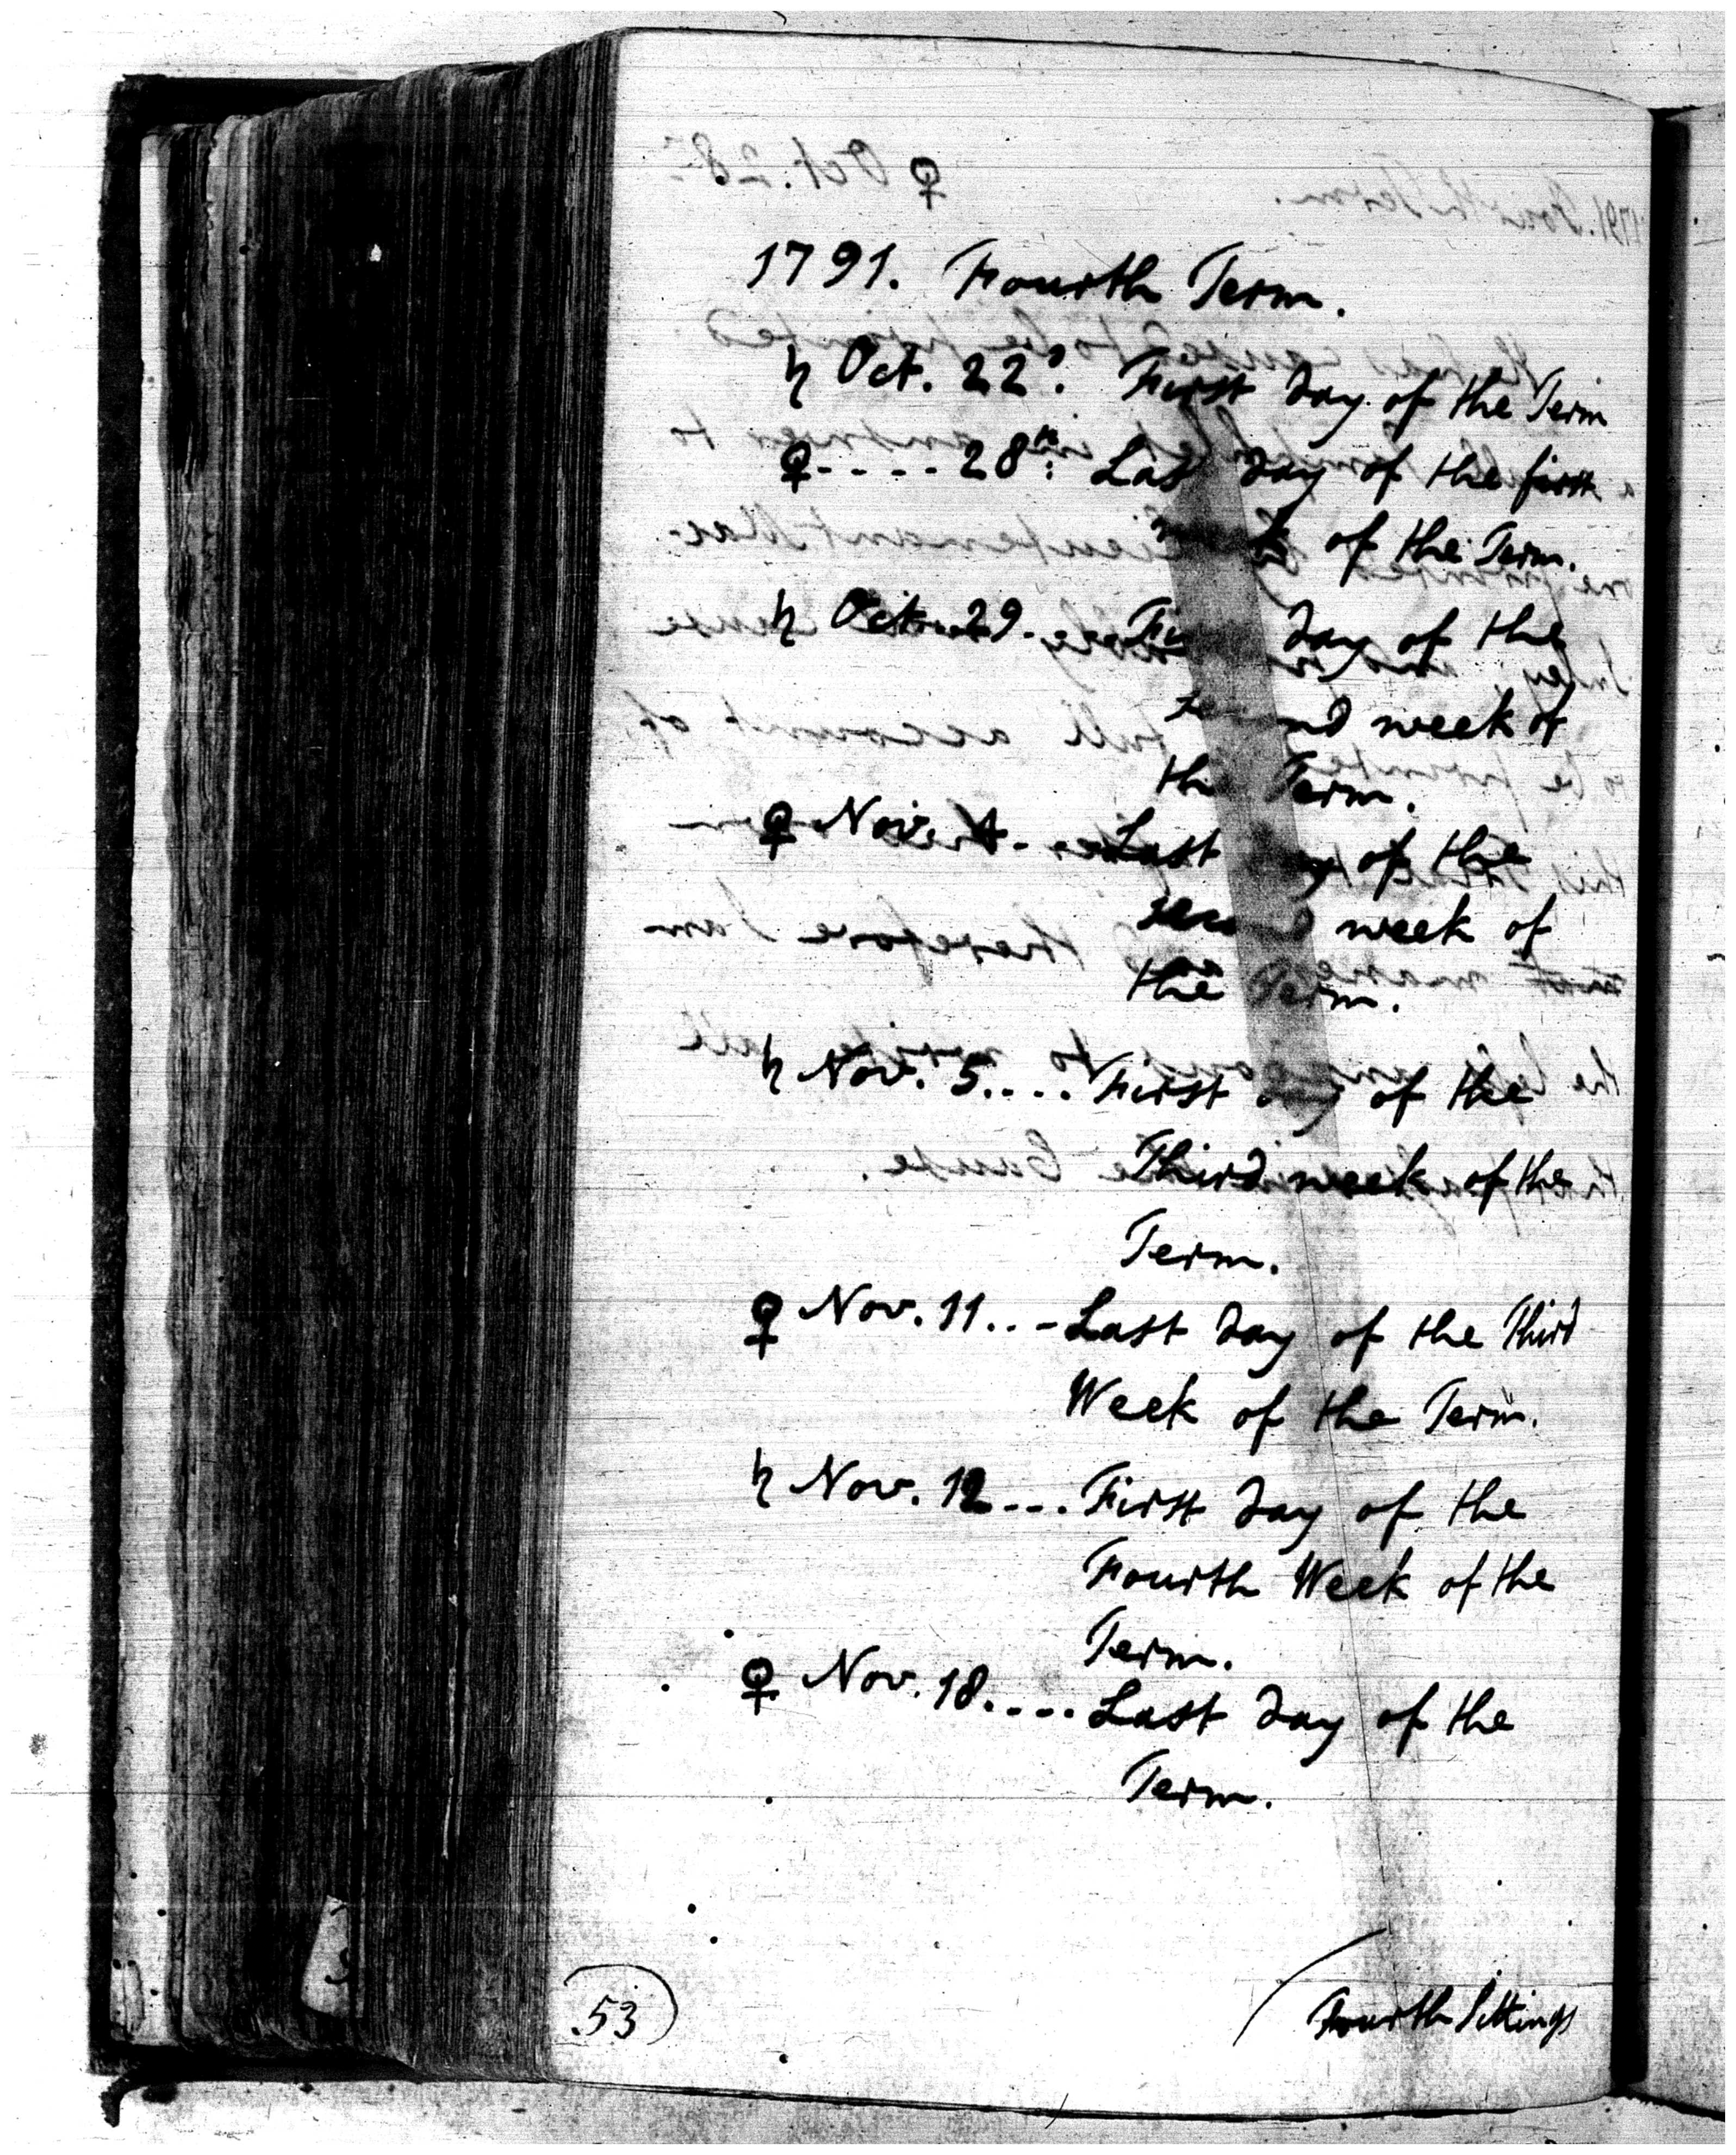 1791. Fourth Term.
♄ Oct. 22d. First Day of the Term
♀ - - - - 28th: Last Day of the first
week of the Term.
♄ Oct. 29. First Day of the
second week of
the Term.
♀ Nov. 4. Last Day of the
second week of
the Term.
♄ Nov. 5.... First Day of the
Third week of the
Term.
♀ Nov. 11.. - Last Day of the Third
Week of the Term.
♄ Nov. 12 - - - . First Day of the
Fourth Week of the
Term.
♀ Nov. 18. - - - . Last Day of the
Term.
53
Fourth Sittings